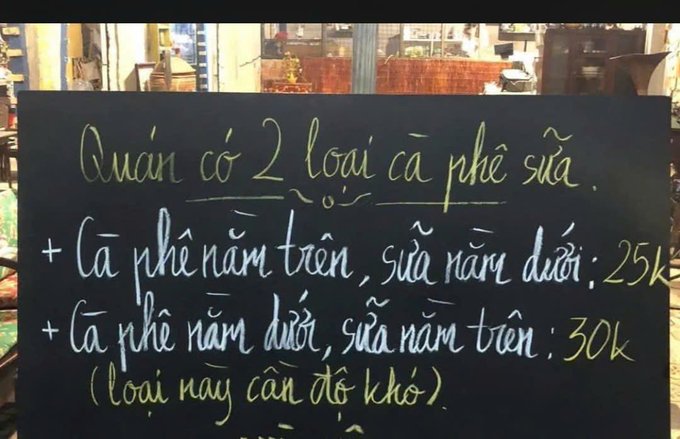 Quán có 2 loại cà phê sữa.
+ Cà phê nằm trên, sữa nằm dưới: 25k
+ Cà phê nằm dưới, sữa nằm trên: 30k
(loại này cần độ khó)